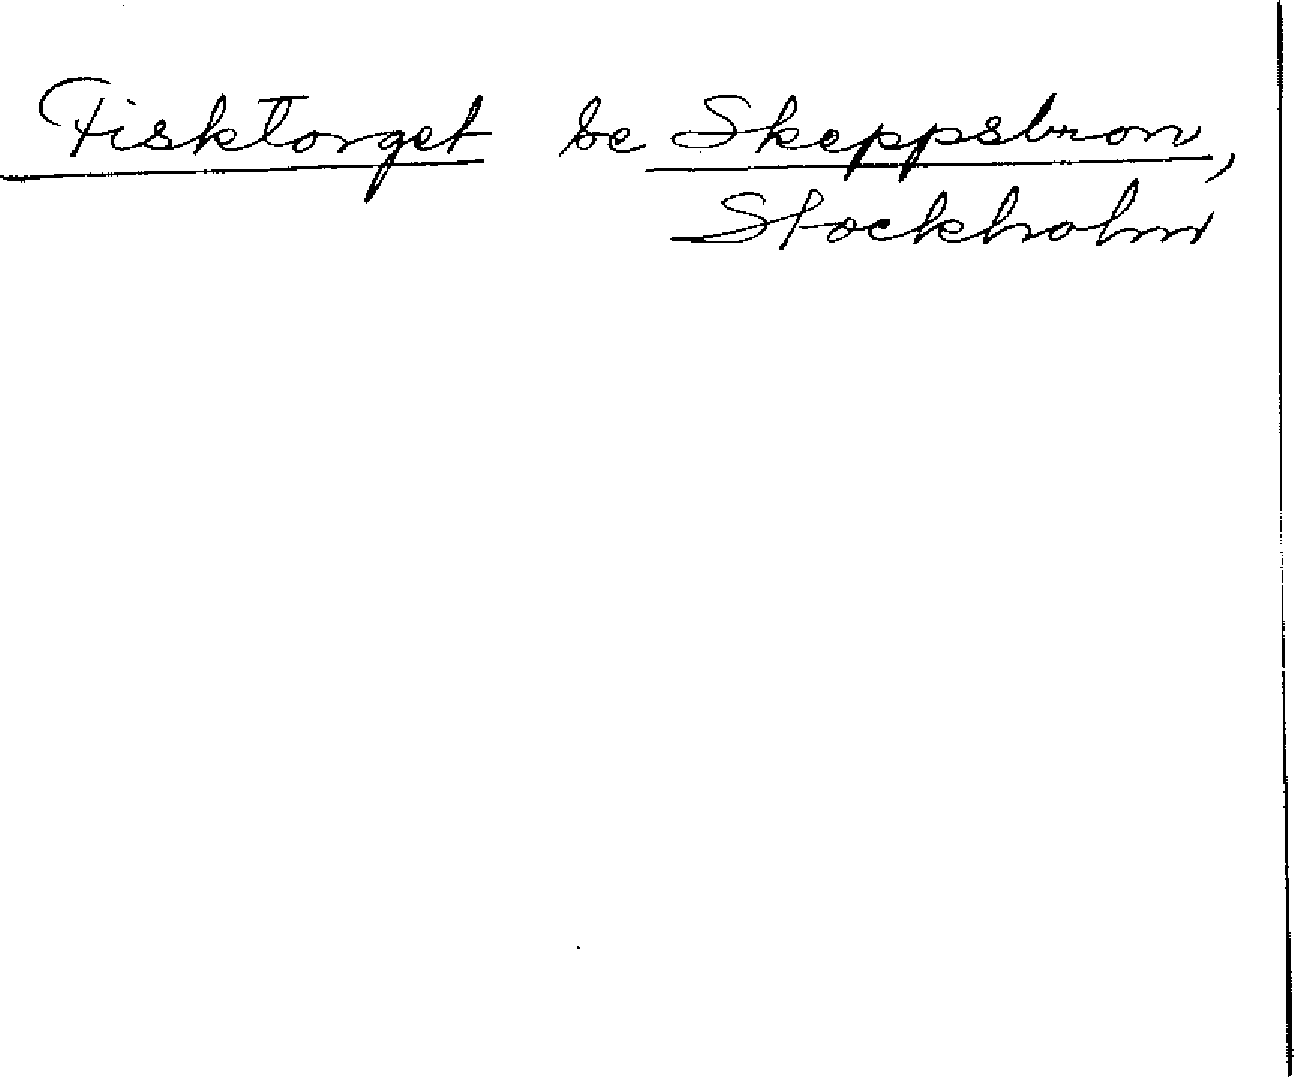 Fisktorget se Skeppsbron,
Stockholm